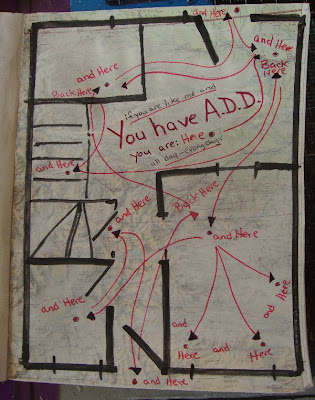 and Here
and Here
and Here
Back Here
Back
Here
if you are like me and
You have A.D.D.
you are: Here
all day - everyday!
and Here
and Here
Back Here
and Here
and Here
and Here
and
Here
and
Here
and Here